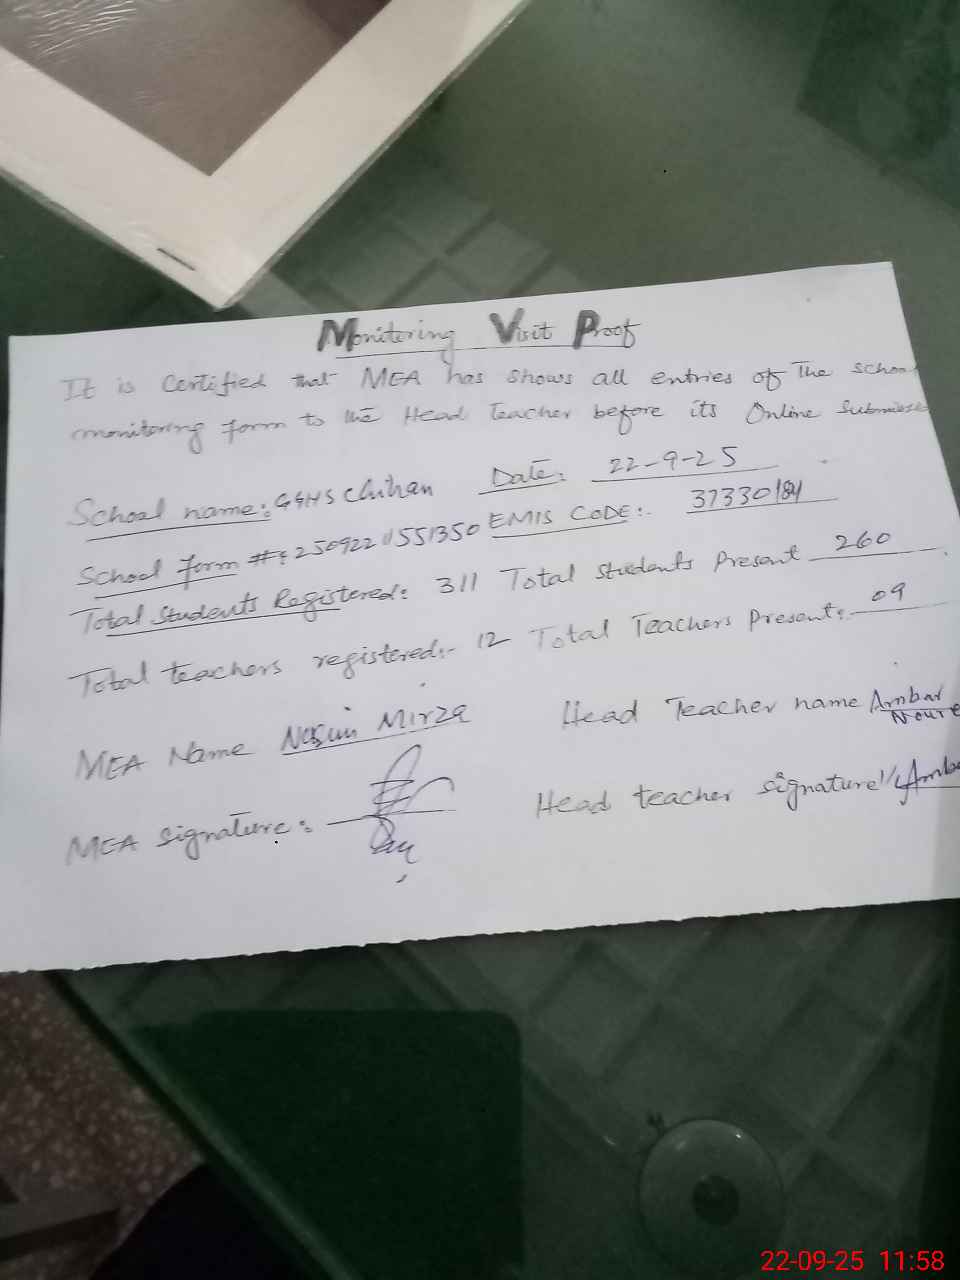 Monitoring Visit Proof
It is Certified that MEA has shows all entries of The school
monitoring form to the Head Teacher before its Online
School name: GGHS Chihan Date: 22-9-25
School form #: 25092211551350 EMIS CODE:. 37330184
Total Students Registered: 311 Total students Present 260
Total teachers registered:- 12 Total Teachers Present: 09
MEA Name Mirza Head Teacher name Ambar
MEA Signature: Head teacher signature
22-09-25 11:58